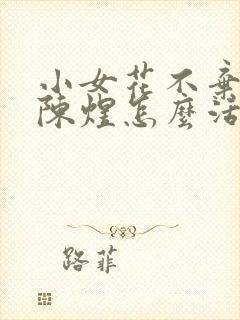 小女花不棄
陳煌怎麼活
路菲